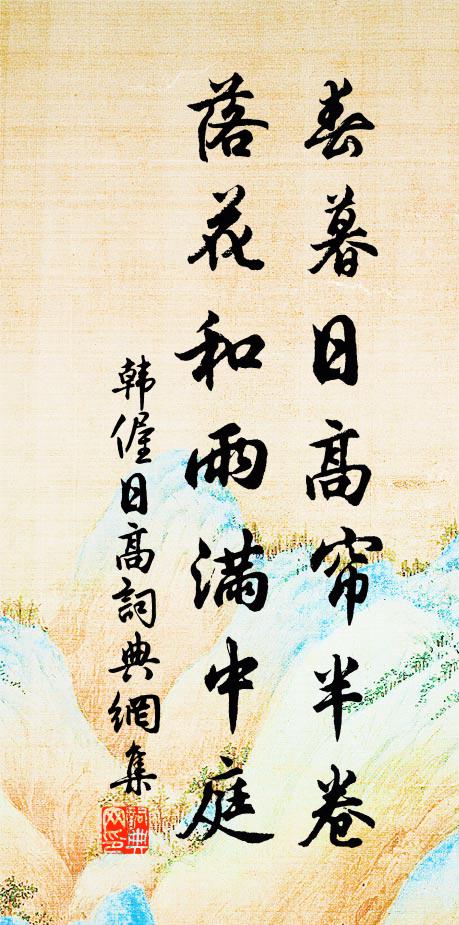 春暮日高帘半卷
落花和雨滿中庭
韩偓日高詞典網集
詞典